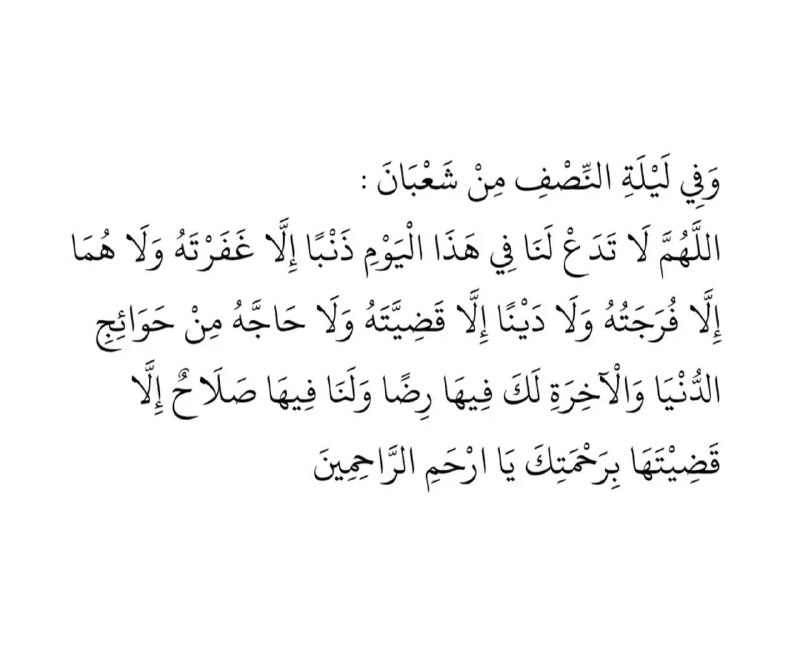 وَفِي لَيْلَةِ النِّصْفِ مِنْ شَعْبَانَ :
اللَّهُمَّ لَا تَدَعْ لَنَا فِي هَذَا الْيَوْمِ ذَنْبًا إِلَّا غَفَرْتَهُ وَلَا هُمَا
إِلَّا فُرَجَتُهُ وَلَا دَيْنًا إِلَّا قَضِيَّتَهُ وَلَا حَاجَّهُ مِنْ حَوَائِجِ
الدُّنْيَا وَالْآخِرَةِ لَكَ فِيهَا رِضًا وَلَنَا فِيهَا صَلَاحٌ إِلَّا
قَضِيْتَهَا بِرَحْمَتِكَ يَا ارْحَمِ الرَّاحِمِينَ